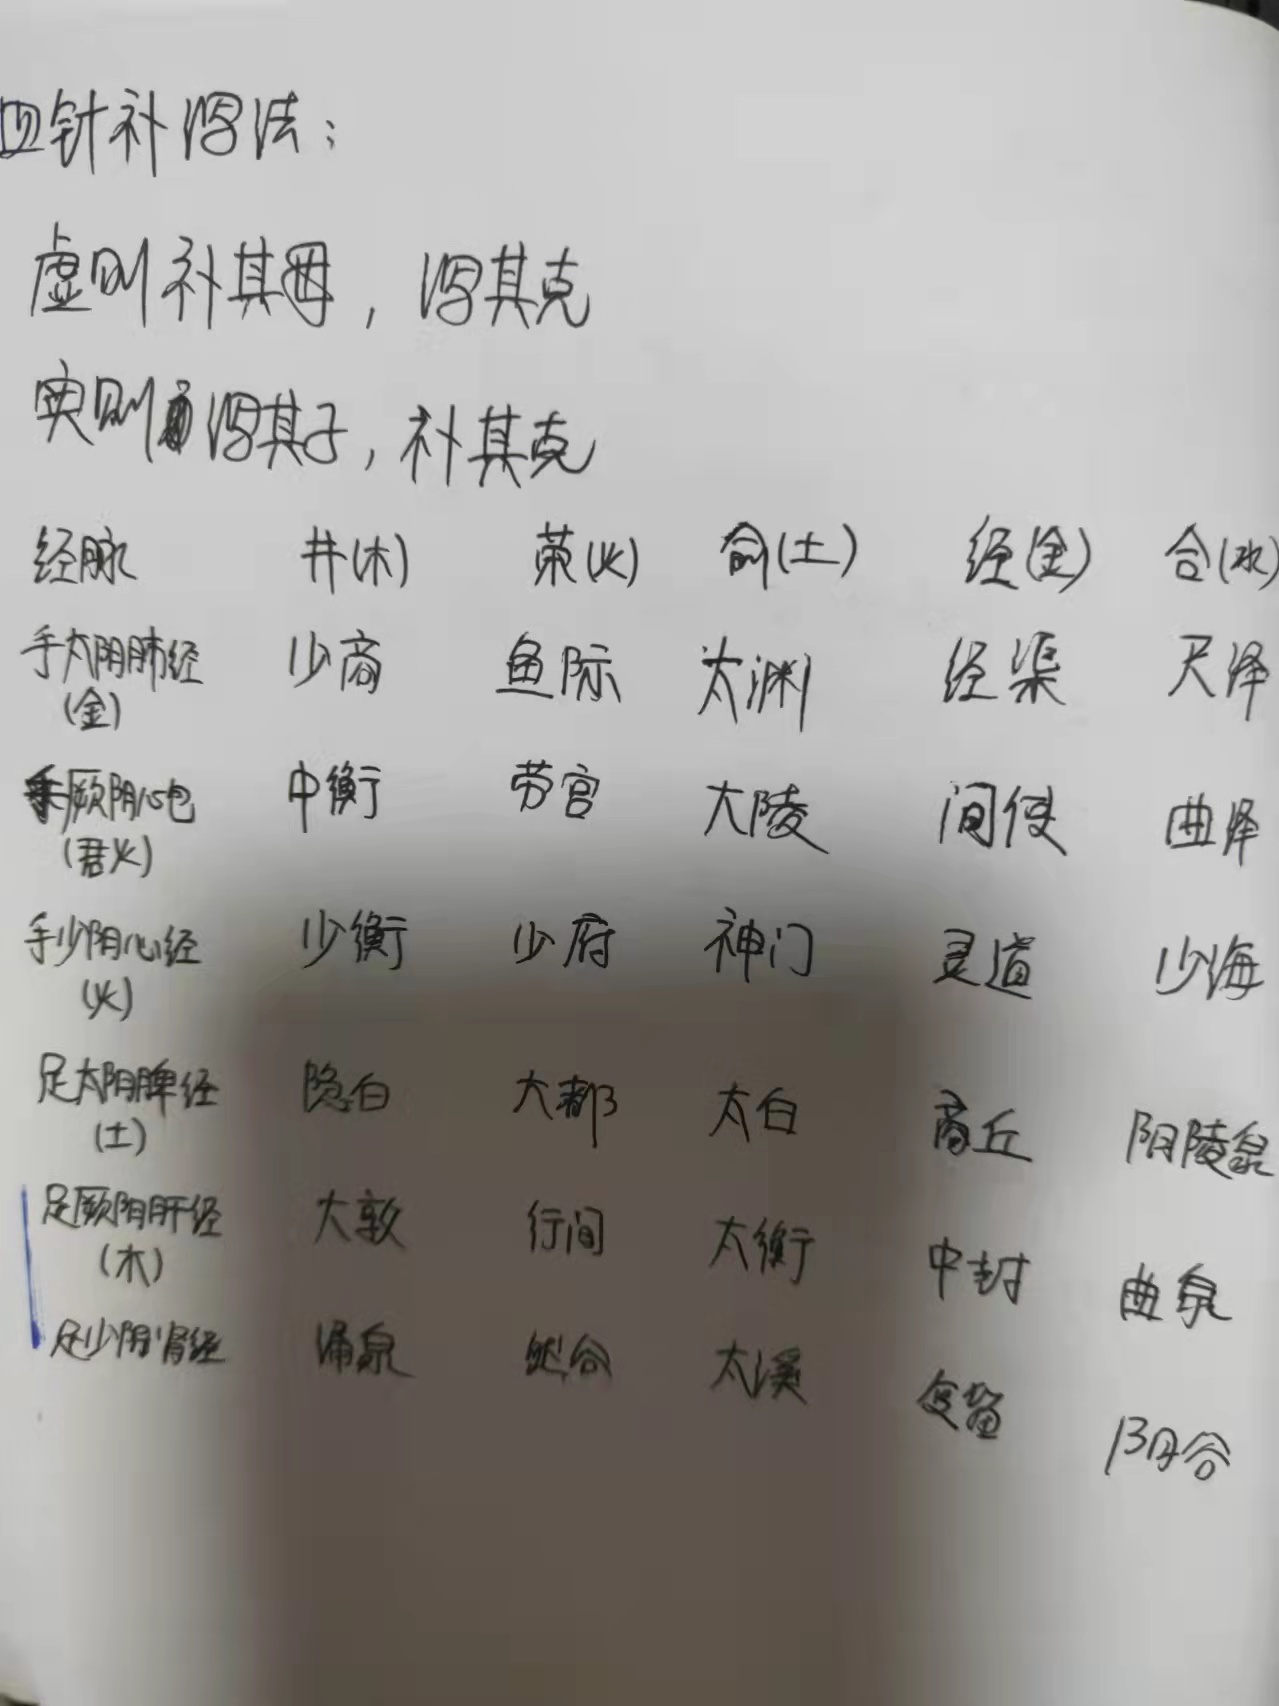 四针补泻法:
虚则补其母，泻其克
实则泻其子，补其克
经脉 井(木) 荥(火) 俞(土) 经(金) 合(水)
手太阴肺经 少商 鱼际 太渊 经渠 尺泽
(金)
手厥阴心包 中衡 劳宫 大陵 间使 曲泽
(君火)
手少阴心经 少衡 少府 神门 灵道 少海
(火)
足太阴脾经 隐白 大都 太白 商丘 阴陵泉
(土)
足厥阴肝经 大敦 行间 太衡 中封 曲泉
(木)
足少阴肾经 涌泉 然谷 太溪 复溜 阴谷